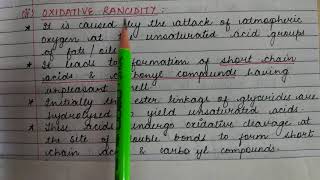 (ii) OXIDATIVE RANCIDITY:
* It is caused by the attack of atmospheric
oxygen at unsaturated acid groups
of fats/oils
* It leads to formation of short chain
acids & carbonyl compounds having
unpleasant smell
* Initially the ester linkage of glycerides are
hydrolysed to yield unsaturated acids.
* These acids undergo oxidative cleavage at
the site of double bonds to form short
chain acids & carbonyl compounds.